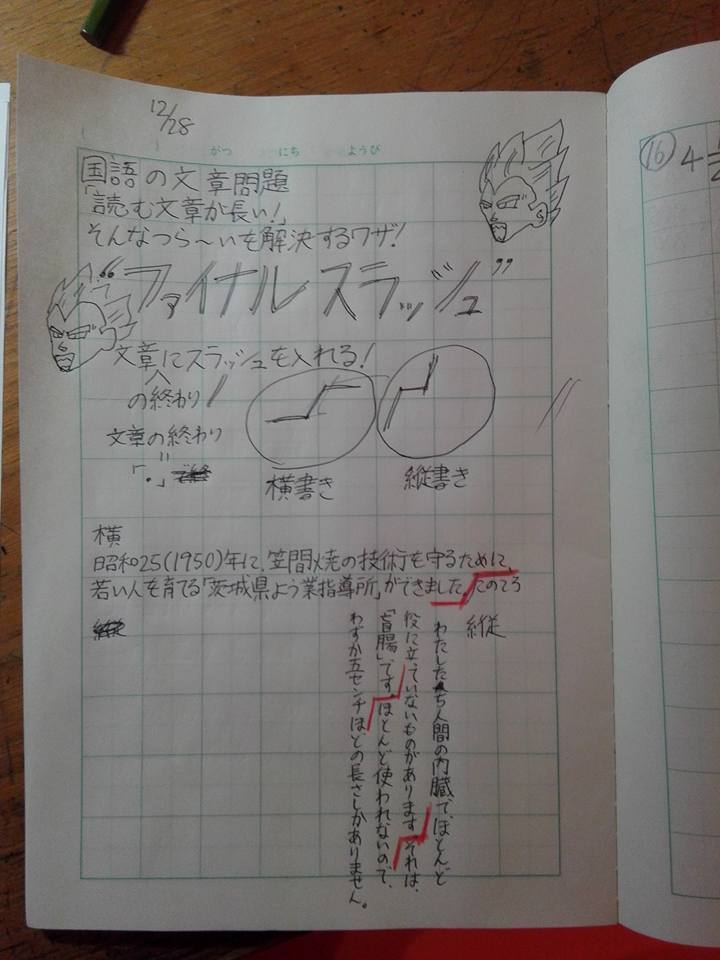 12/28
がつ にち ようび
国語の文章問題
「読む文章が長い!」
そんなつら〜いを解決するワザ!
“ファイナルスラッシュ”
文章にスラッシュを入れる!
の終わり //
文章の終わり
「。」
横書き
縦書き
横
昭和25(1950)年に、笠間焼の技術を守るために、
若い人を育てる「茨城県よう業指導所」ができました。
縦
わたしたち人間の内臓で、ほとんど
役に立っていないものがあります。それは、
「盲腸」です。ほとんど使われないので、
わずか五センチほどの長さしかありません。
16 4